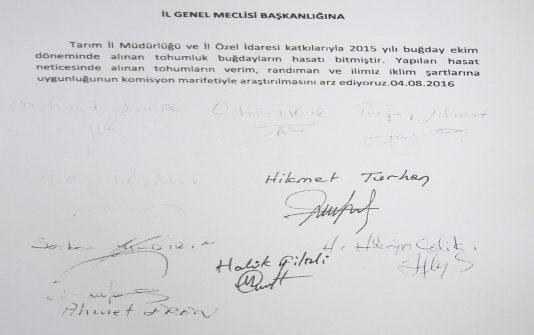 İL GENEL MECLİSİ BAŞKANLIĞINA
Tarım İl Müdürlüğü ve İl Özel İdaresi katkılarıyla 2015 yılı buğday ekim
döneminde alınan tohumluk buğdayların hasatı bitmiştir. Yapılan hasat
neticesinde alınan tohumların verim, randıman ve ilimiz iklim şartlarına
uygunluğunun komisyon marifetiyle araştırılmasını arz ediyoruz.04.08.2016
Hikmet Turhan
Serkan
Haluk
H. Hüseyin Çelik
Ahmet EREN